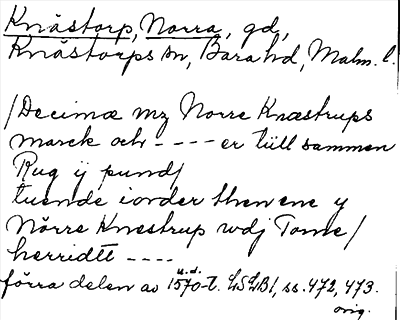 Knästorp, Norra, gd,
Knästorps sn, Bara hd, Malm. l.
/Decimæ mz Norre Knæstrups
marck och - - - - er tiill sammen
Rug ij pund/
tuende iorder then ene y
Nörre Knestrup wdj Torne/
herridtt - - - -
förra delen av 1570-t. LSLB1, ss. 472, 473.
u.d.
orig.